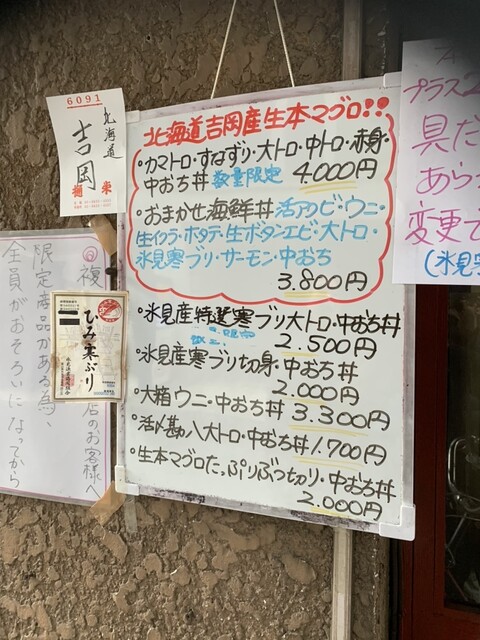 北海道吉岡産生本マグロ!!
・カマトロ・すなずり・大トロ・中トロ・赤身・
中おち丼 数量限定 4.000円
・おまかせ海鮮丼 活アワビ・ウニ・
生イクラ・ホタテ・生ボタンエビ・大トロ・
氷見寒ブリ・サーモン・中おち
3.800円
・氷見産特選寒ブリ大トロ・中おち丼
2.500円
・氷見産寒ブリ切身・中おち丼
2.000円
・大箱ウニ・中おち丼 3.300円
・活〆勘八大トロ・中おち丼 1.700円
・生本マグロたっぷりぶつ切り・中おち丼
2.000円
6091
北海道
吉岡
ひみ寒ぶり
複
店のお客様へ
限定商品がある為、
全員がおそろいになってから
プラス2
具だ
あら
変更で
(氷見